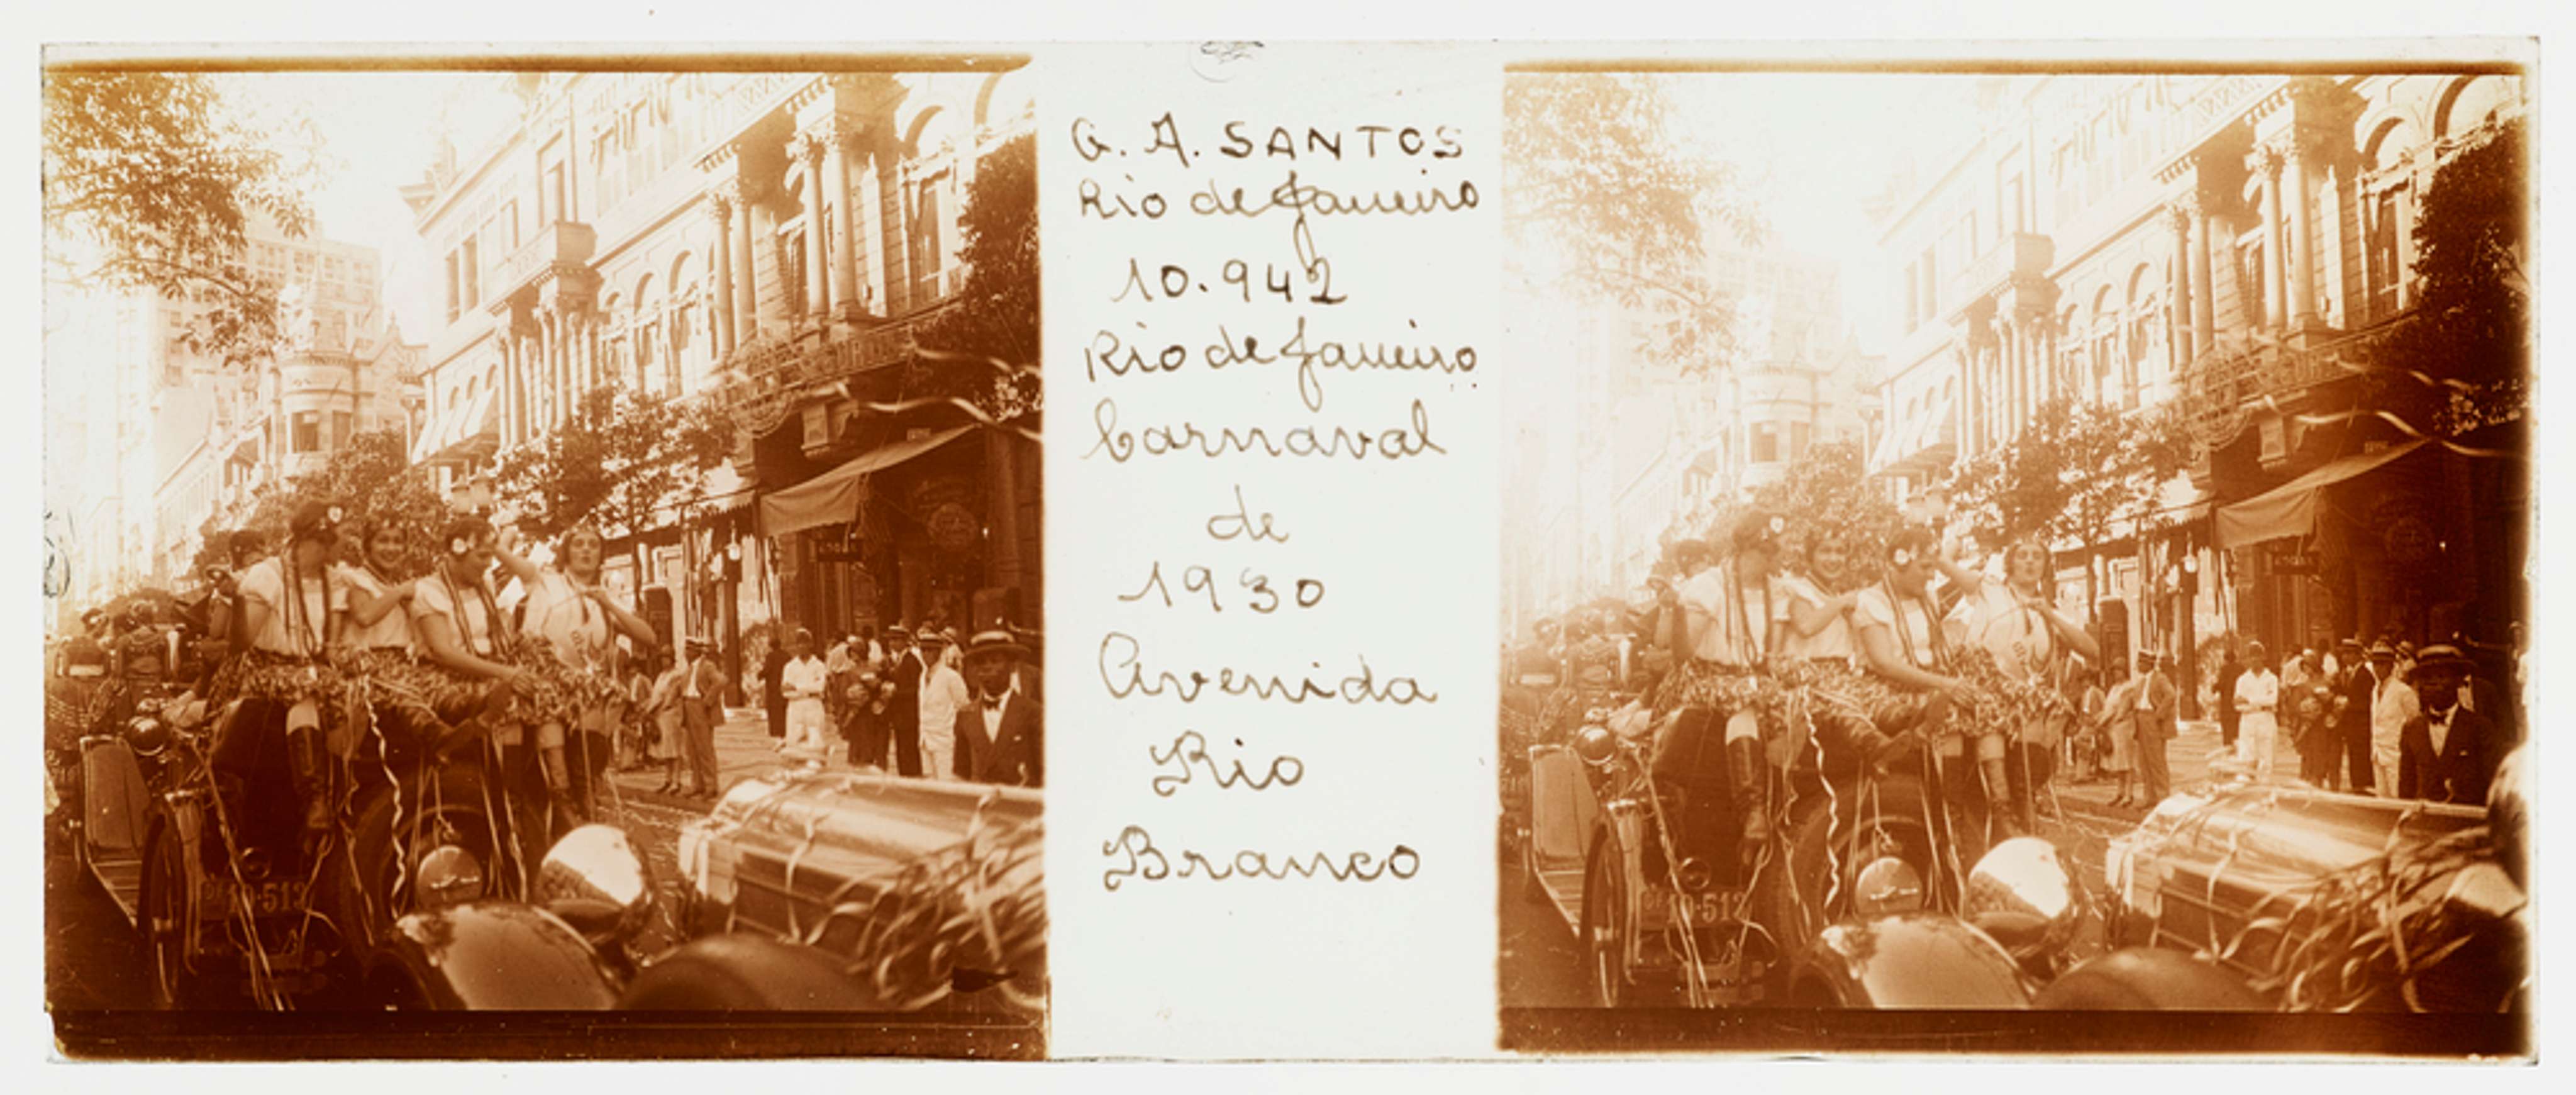 G. A. SANTOS
Rio de Janeiro
10.942
Rio de Janeiro
Carnaval
de
1930
Avenida
Rio
Branco
10-513
10-512